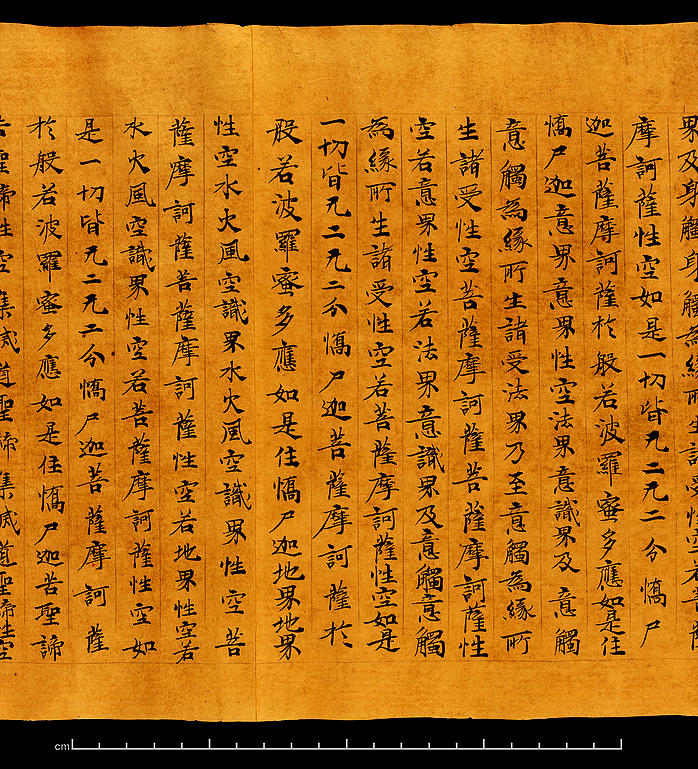 界及身觸身觸為緣所生諸受性空若菩薩
摩訶薩性空如是一切皆无二无二分憍尸
迦菩薩摩訶薩於般若波羅蜜多應如是住
憍尸迦意界意界性空法界意識界及意觸
意觸為緣所生諸受法界乃至意觸為緣所
生諸受性空菩薩摩訶薩菩薩摩訶薩性
空若意界性空若法界意識界及意觸意觸
為緣所生諸受性空若菩薩摩訶薩性空如是
一切皆无二无二分憍尸迦菩薩摩訶薩於
般若波羅蜜多應如是住憍尸迦地界地界
性空水火風空識界水火風空識界性空菩
薩摩訶薩菩薩摩訶薩性空若地界性空若
水火風空識界性空若菩薩摩訶薩性空如
是一切皆无二无二分憍尸迦菩薩摩訶薩
於般若波羅蜜多應如是住憍尸迦苦聖諦
苦聖諦性空集滅道聖諦集滅道聖諦性空
cm